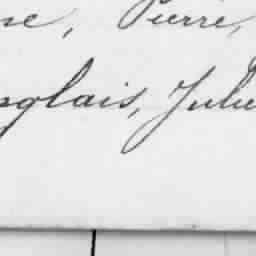 Pierre,
nglais, Julie